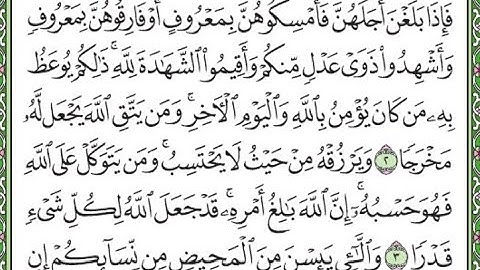 فَإِذَا بَلَغْنَ أَجَلَهُنَّ فَأَمْسِكُوهُنَّ بِمَعْرُوفٍ أَوْ فَارِقُوهُنَّ بِمَعْرُوفٍ
وَأَشْهِدُوا۟ ذَوَىْ عَدْلٍ مِّنكُمْ وَأَقِيمُوا۟ ٱلشَّهَـٰدَةَ لِلَّهِ ۚ ذَٰلِكُمْ يُوعَظُ
بِهِۦ مَن كَانَ يُؤْمِنُ بِٱللَّهِ وَٱلْيَوْمِ ٱلْـَٔاخِرِ ۚ وَمَن يَتَّقِ ٱللَّهَ يَجْعَل لَّهُۥ
مَخْرَجًا ٢ وَيَرْزُقْهُ مِنْ حَيْثُ لَا يَحْتَسِبُ ۚ وَمَن يَتَوَكَّلْ عَلَى ٱللَّهِ
فَهُوَ حَسْبُهُۥٓ ۚ إِنَّ ٱللَّهَ بَـٰلِغُ أَمْرِهِۦ ۚ قَدْ جَعَلَ ٱللَّهُ لِكُلِّ شَىْءٍ
قَدْرًا ٣ وَٱلَّـٰٓـِٔى يَئِسْنَ مِنَ ٱلْمَحِيضِ مِن نِّسَآئِكُمْ إِنِ